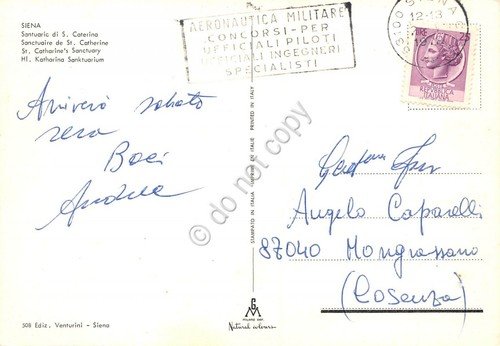 SIENA
Santuario di S. Caterina
Sanctuaire de St. Catherine
St. Catharine's Sanctuary
Hl. Katharina Sanktuarium
AERONAUTICA MILITARE
CONCORSI-PER
UFFICIALI PILOTI
UFFICIALI INGEGNERI
SPECIALISTI
SIENA
12-13
Arriverò sabato
sera
Baci
STAMPATO IN ITALIA
EN ITALIE
PRINTED IN ITALY
Angelo Caparelli
87040 Mongrassano
(Cosenza)
do not copy
508 Ediz. Venturini - Siena
Natural colours